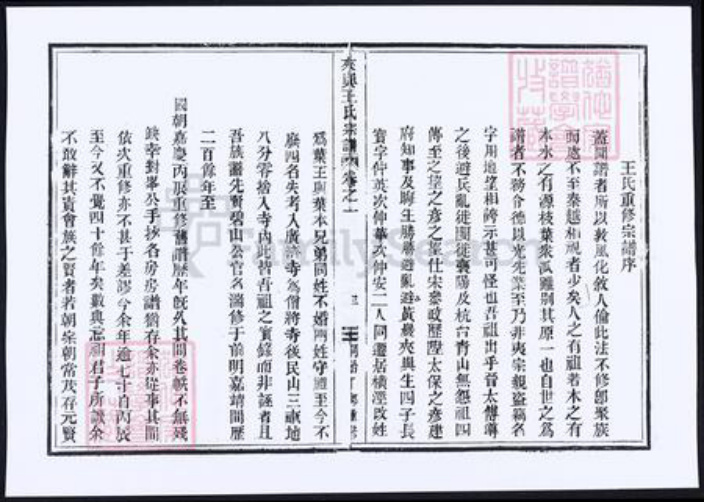 王氏重修宗譜序
蓋聞譜者所以敦風化敘人倫此法不修卽聚族
而處不至秦越相視者少矣人之有祖若木之有
本水之有源枝葉衆派雖別其原一也自世之為
譜者不務令德以光先業至乃非夷宗親盜竊名
字用地望相誇示甚可怪也吾祖出乎晉太傅導
之後避兵亂徙閩徙襄陽及杭台青山無怨祖四
傳至之望之彥之彥仕宋參政歷陞太保之彥建
府知事及脢生勝勝避亂避黃巖夾輿生四子長
寶字仲英次仲華次仲安二人同遷居橫涇改姓
夾輿王氏宗譜 卷之一
三
王
為葉王與葉本兄弟同姓不婚兩姓守禮至今不
廢四名失考入廣嚴寺為僧將寺後民山三畝地
八分眷捨入寺內此皆吾祖之實錄而非誣者且
吾族譜先賢碧山公官名濡修于前明嘉靖間歷
二百餘年至
國朝嘉慶丙辰重修舊譜歷年旣久其間卷帙不無殘
缺幸對峯公手抄各房房譜猶存余亦從事其間
依次重修亦不甚于差謬今余年逾七十自丙辰
至今又不覺四十餘年矣數典忘祖君子所譏余
不敢辭其責會族之賢者若朝宗朝常茂存元賢
FamilySearch